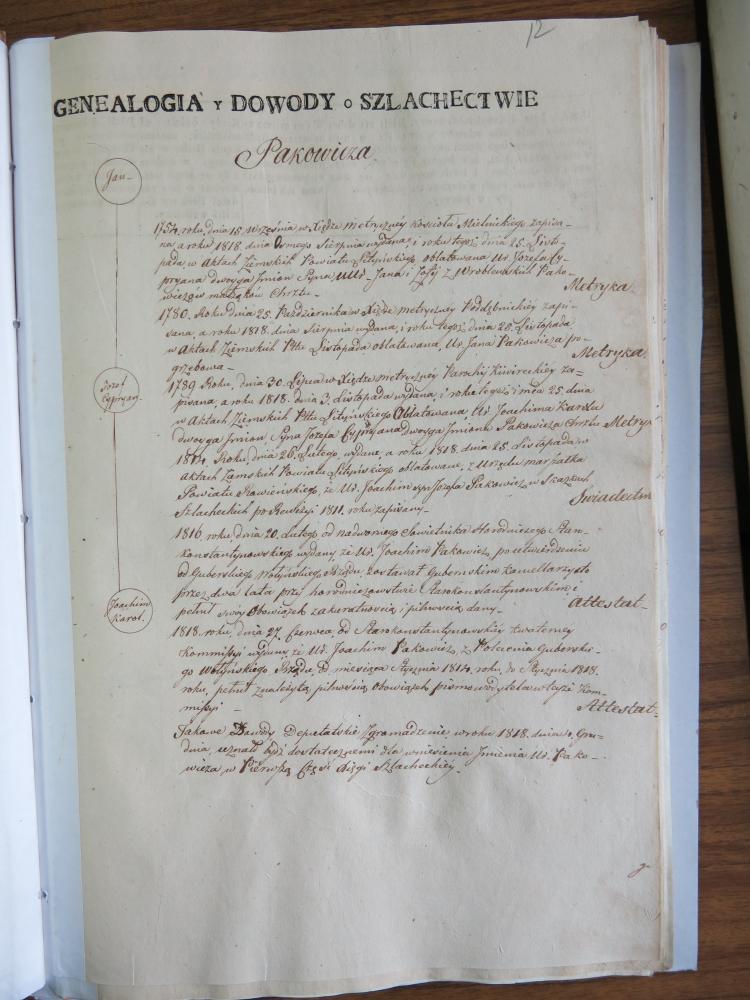 12
GENEALOGIA Y DOWODY O SZLACHECTWIE
Pakowicza
Jan
1754. roku, dnia 15. Września w Xiędze metryczney kościoła Mielnickiego zapisa=
na, a roku 1818 dnia Osmego Sierpnia wydana, i roku tegoż dnia 25. Listo=
pada w Aktach Ziemskich Powiatu oblatowana Ur. Józefa Cy=
pryana dwoyga Jmion Syna Jana i Zofij z Wroblewskich Pako=
wiczow małżąków Chrztu.
Metryka
1780. Roku dnia 25. Pazdziernika w Xiędze metryczney zapi=
sana, a roku 1818. dnia Sierpnia wydana, i roku tegoż dnia 20. Listopada
w Aktach Ziemskich Pttu Listopada oblatowana, Ur. Jana Pakowicza po=
grzebowa
Metryka
Jozef
Cypryan
1789 Roku, dnia 30. Lipca w Xiędze metryczney Parochij za=
pisana, a roku 1818. dnia 3. Listopada wydana, i roku tegoż i mca 25. dnia
w Aktach Ziemskich Pttu Oblatowana, Ur. Joachima Karola
dwoyga Jmion, Syna Jozefa Cypryana dwoyga Jmion Pakowicza Chrztu Metryk
1814. Roku, dnia 26. Lutego, wydane, a roku 1818. dnia 25. Listopada w
Aktach Ziemskich Powiatu oblatowane, z Urzędu marszałka
Powiatu Rowieńskiego, że Ur. Joachim syn Jozefa Pakowicz w Skazkach
Szlacheckich po Rewizyi 1811. roku zapisany
Swiadectw
1816. roku, dnia 20. Lutego od nadwornego Sowietnika Horodniczego Staro
konstantynowskiego wydany, że Ur. Joachim Pakowicz, po utwierdzeniu
od Guberskiego Wołyńskiego Rządu, zostawał Gubernskim
przez dwa lata przy horodniczowstwie Starokonstantynowskim i
pełnił swoy Obowiązek z akuratnością i pilnością dany
Attestat
Joachim
Karol
1818. roku, dnia 27. Czerwca, od Starokonstantynowskiey kwaterney
Kommissyi wydany, że Ur. Joachim Pakowicz, z Polecenia Guberskie=
go Wołyńskiego Rządu, od miesiąca Stycznia 1814. roku, do Stycznia 1818.
roku, pełnił z należytą pilnością obowiązek pismowoditela w teyże Kom=
missyi
Attestat
Jakowe Dowody Deputatskie Zgromadzenie w roku 1818. dnia Gru=
dnia, uznało bydź dostatecznemi dla wniesienia Jmienia Ur. Pako=
wicza w Pierwszą Część Xięgi Szlacheckiey